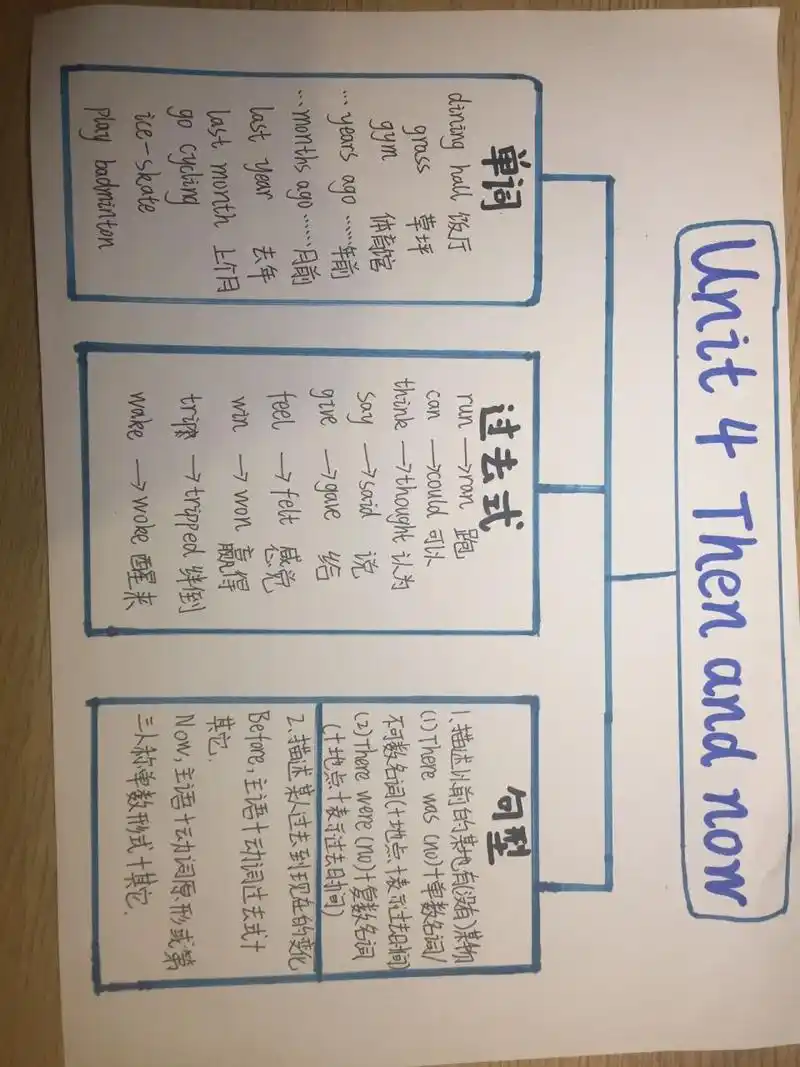 Unit 4 Then and now
单词
dining hall 饭厅
grass 草坪
gym 体育馆
…years ago ……年前
…months ago ……月前
last year 去年
last month 上个月
go cycling
ice-skate
play badminton
过去式
run →ran 跑
can →could 可以
think →thought 认为
say →said 说
give →gave 给
feel →felt 感觉
win →won 赢得
trip →tripped 绊倒
wake →woke 醒来
句型
1.描述以前的某地有(没有)某物
(1)There was (no)+单数名词/
不可数名词(+地点+表示过去时间)
(2)There were (no)+复数名词
(+地点+表示过去时间)
2.描述某人过去到现在的变化
Before,主语+动词过去式+
其它.
Now,主语+动词原形或第
三人称单数形式+其它.